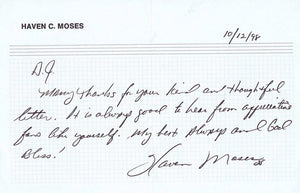 HAVEN C. MOSES
10/12/98
D.J.
Many thanks for your kind and thoughtful
letter. It is always good to hear from appreciative
fans like yourself. My best always and God
Bless!
Haven Moses